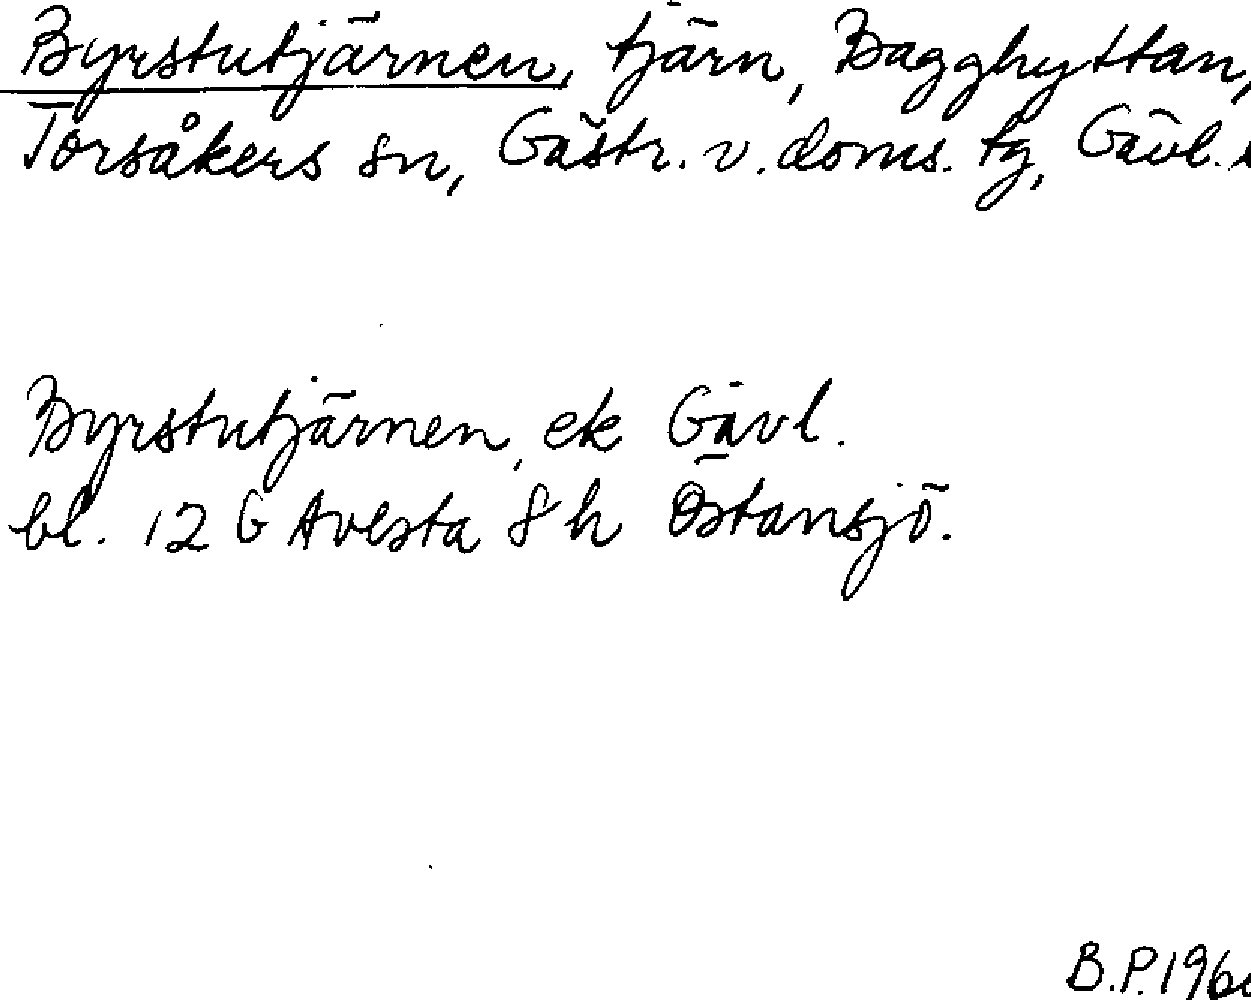 Byrstutjärnen, tjärn, Bagghyttan,
Torsåkers sn, Gästr. v. doms. tg, Gävl.
Byrstutjärnen, ek Gävl.
bl. 12 G Avesta 8 h Östansjö.
B.P.